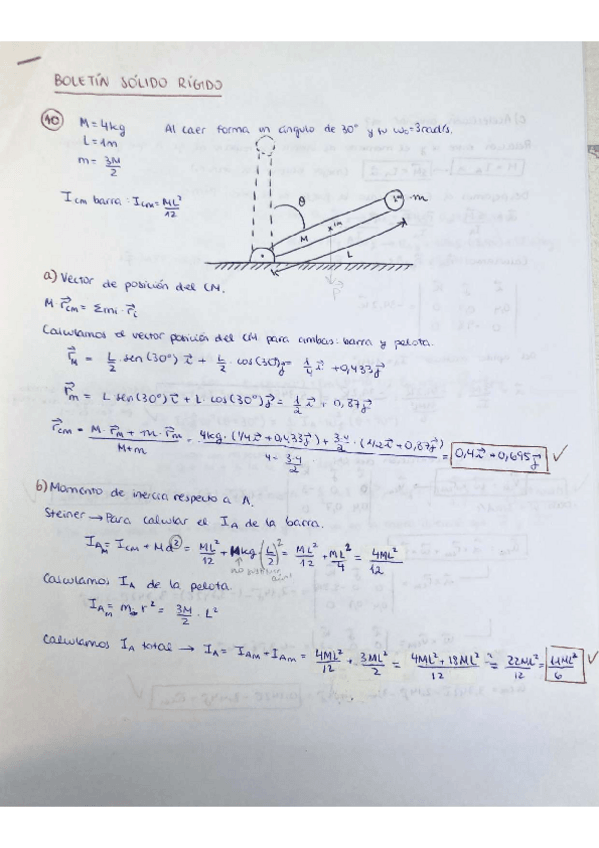 BOLETÍN SÓLIDO RÍGIDO
10 M = 4kg Al caer forma un ángulo de 30° y su ω₀=3rad/s.
L = 1m
m = 3M/2
I cm barra : Icm = ML²/12
θ
m
M
L
a) Vector de posición del CM.
M · r⃗cm = Σmi · r⃗i
Calculamos el vector posición del CM para ambas: barra y pelota.
r⃗M = L/2 · sen(30°) i⃗ + L/2 · cos(30°) j⃗ = 1/4 i⃗ + 0,433 j⃗
r⃗m = L sen(30°) i⃗ + L cos(30°) j⃗ = 1/2 i⃗ + 0,87 j⃗
r⃗cm = M · r⃗M + m · r⃗m / M+m = 4kg · (1/4 i⃗ + 0,433 j⃗) + 3·4/2 · (1/2 i⃗ + 0,87 j⃗) / 4 - 3·4/2 = 0,4 i⃗ + 0,695 j⃗ ✓
b) Momento de inercia respecto a A.
Steiner → Para calcular el IA de la barra.
IAM = Icm + Md² = ML²/12 + M kg · (L/2)² = ML²/12 + ML²/4 = 4ML²/12
Calculamos IA de la pelota.
IAm = m · r² = 3M/2 · L²
Calculamos IA total → IA = IAM + IAm = 4ML²/12 + 3ML²/2 = 4ML² + 18ML²/12 = 22ML²/12 = 11ML²/6 ✓